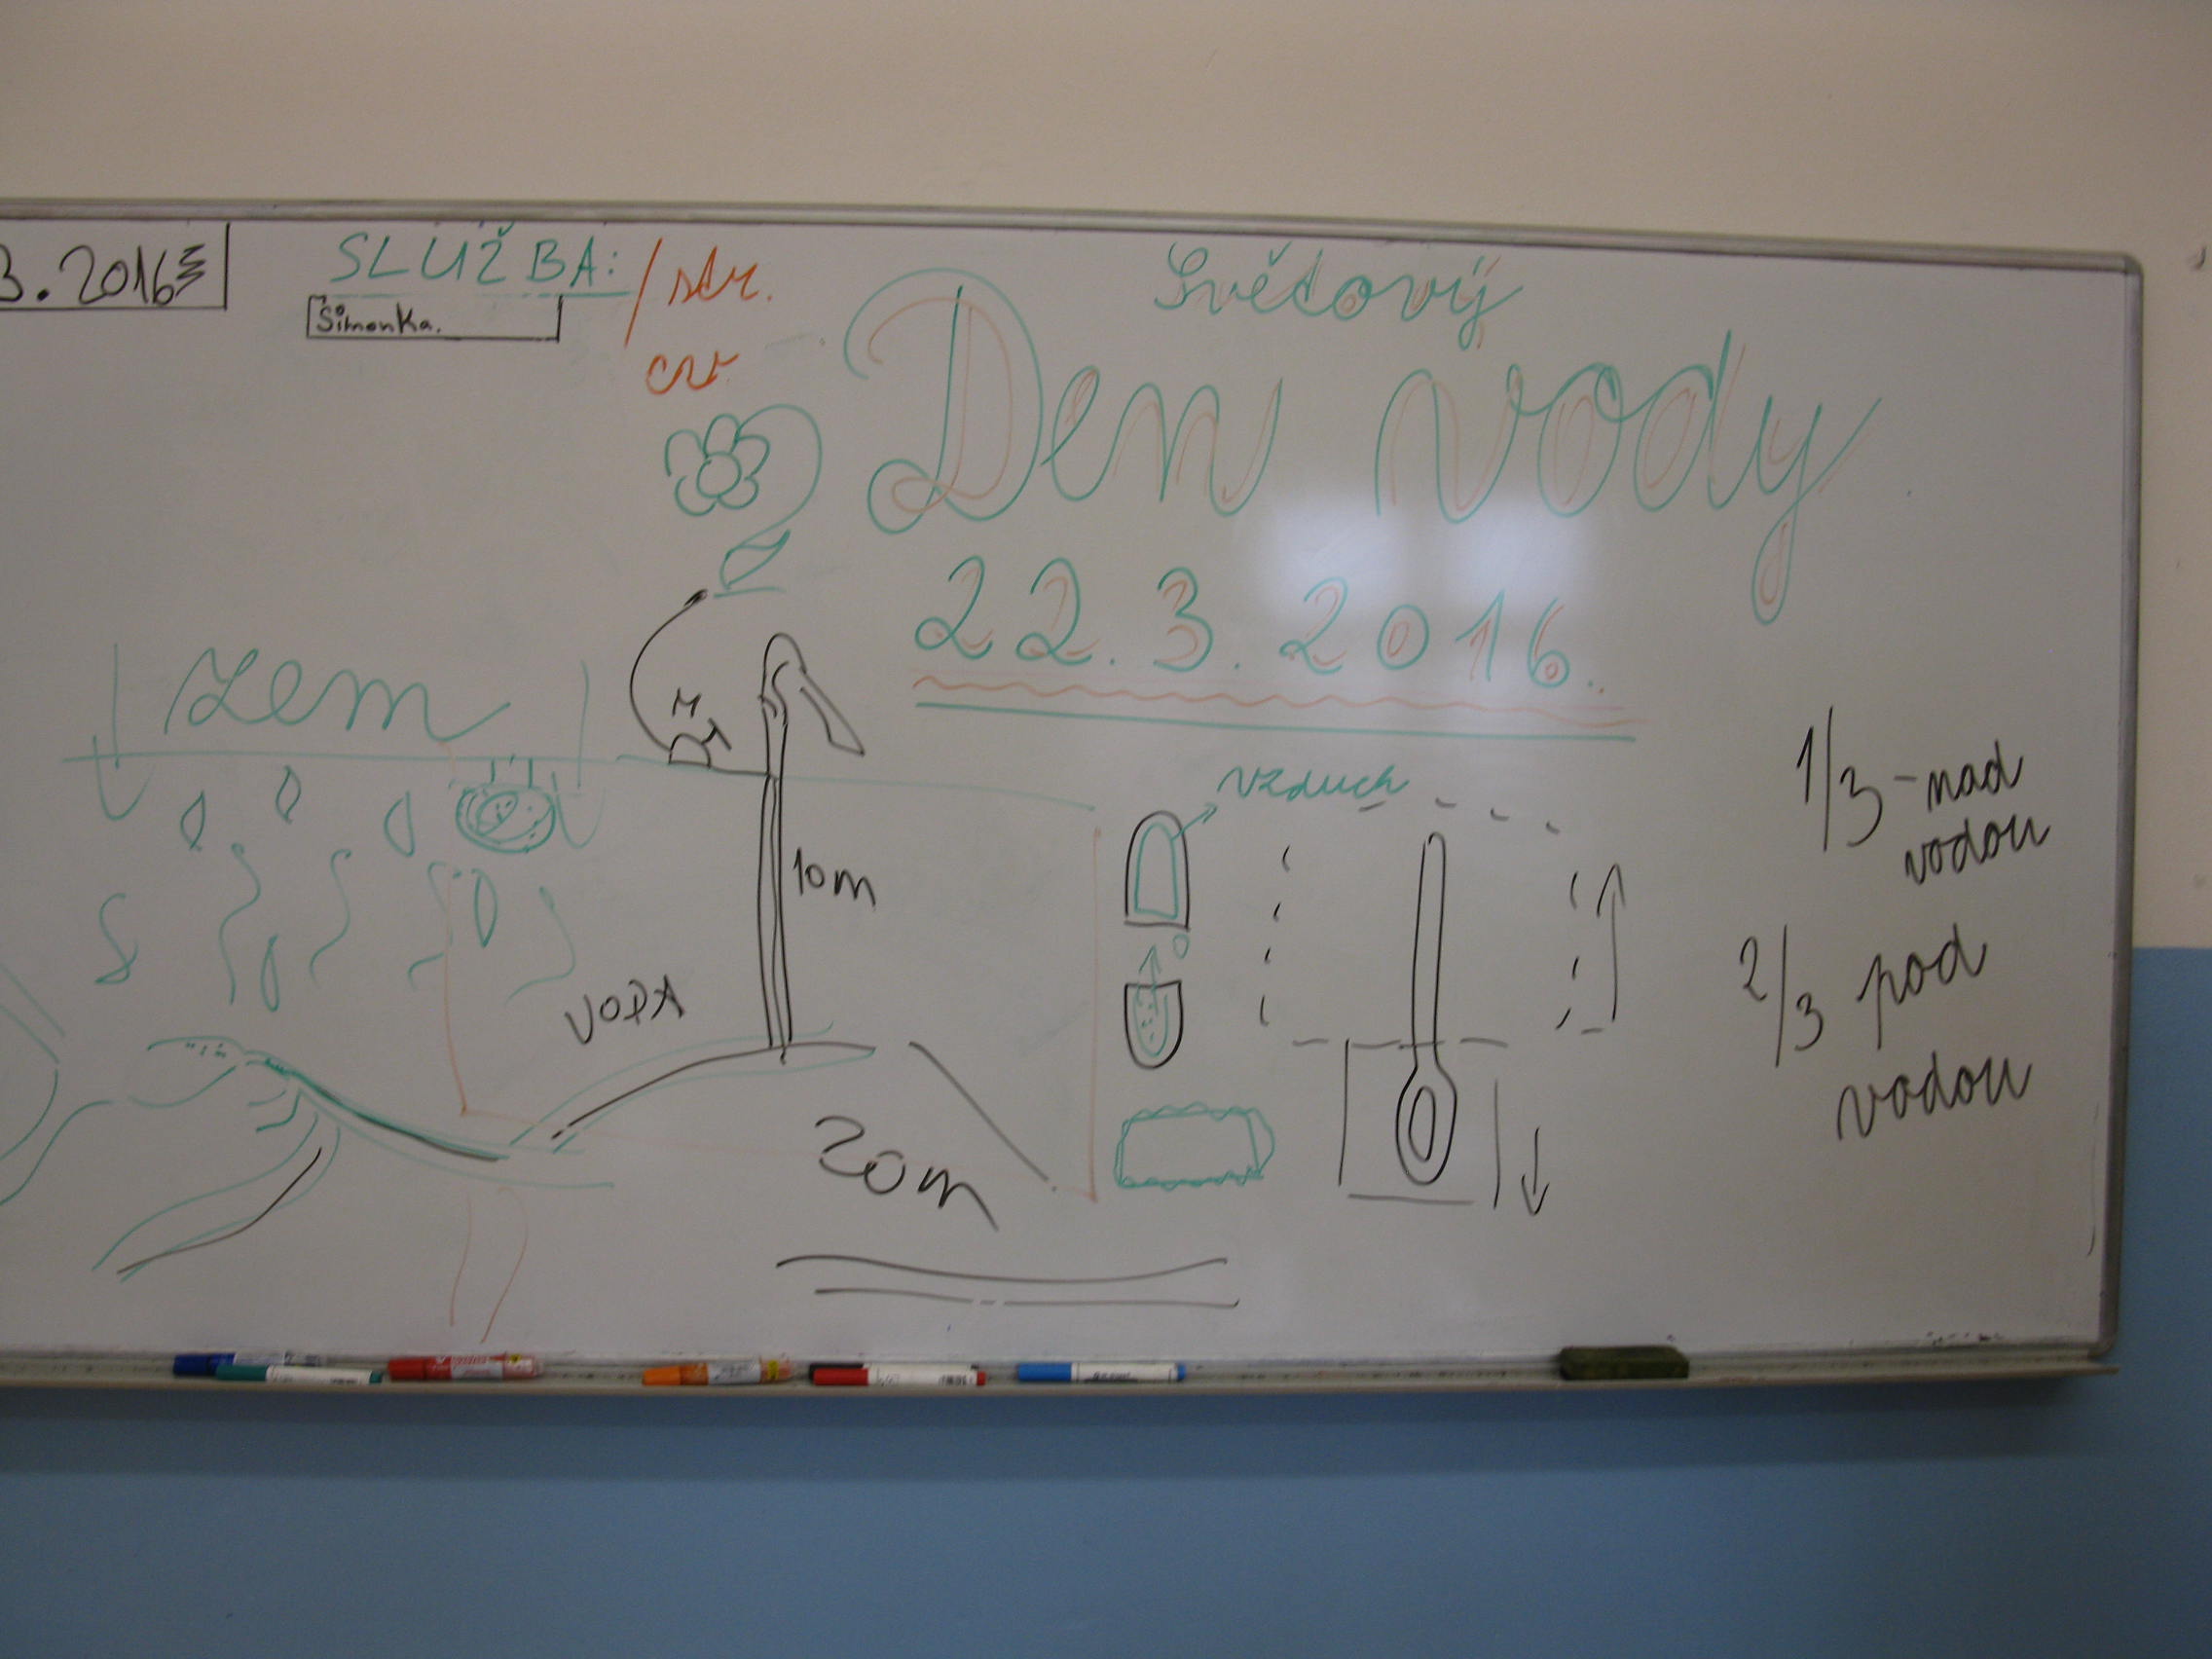 3.2016
SLUŽBA:
Simonka.
/str.
cv
Světový
Den vody
22.3.2016.
zem
M
10m
VODA
20m
vzduch
1/3 - nad
vodou
2/3 pod
vodou